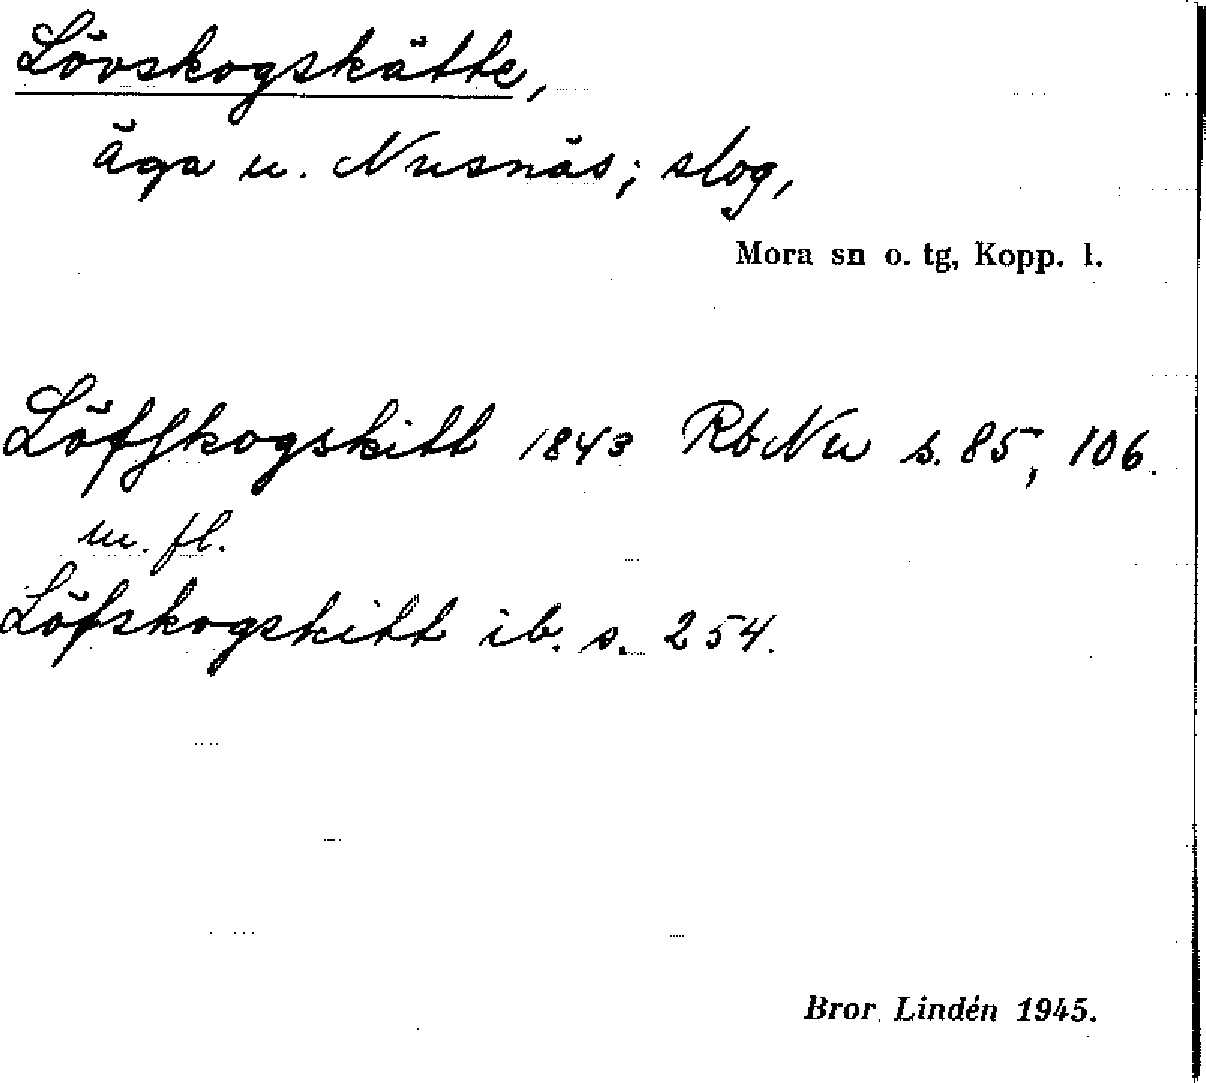 Lövskogskätte,
äga u. Nusnäs; slog,
Mora sn o. tg, Kopp. l.
Löfſkogskitt 1843 RbNu s. 85, 106.
m. fl.
Löfskogskitt ib. s. 254.
Bror Lindén 1945.